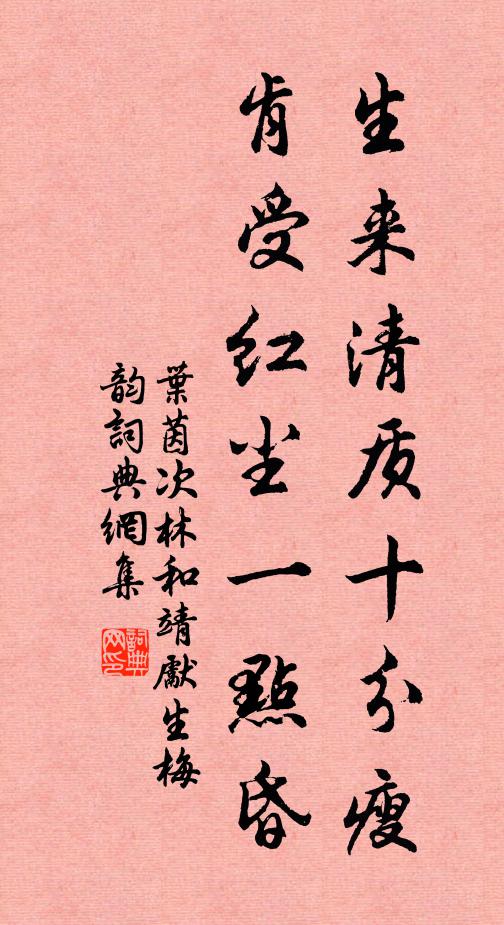 生来清质十分瘦
肯受红尘一點昏
葉茵次林和靖獻生梅
韵詞典網集
詞典网印